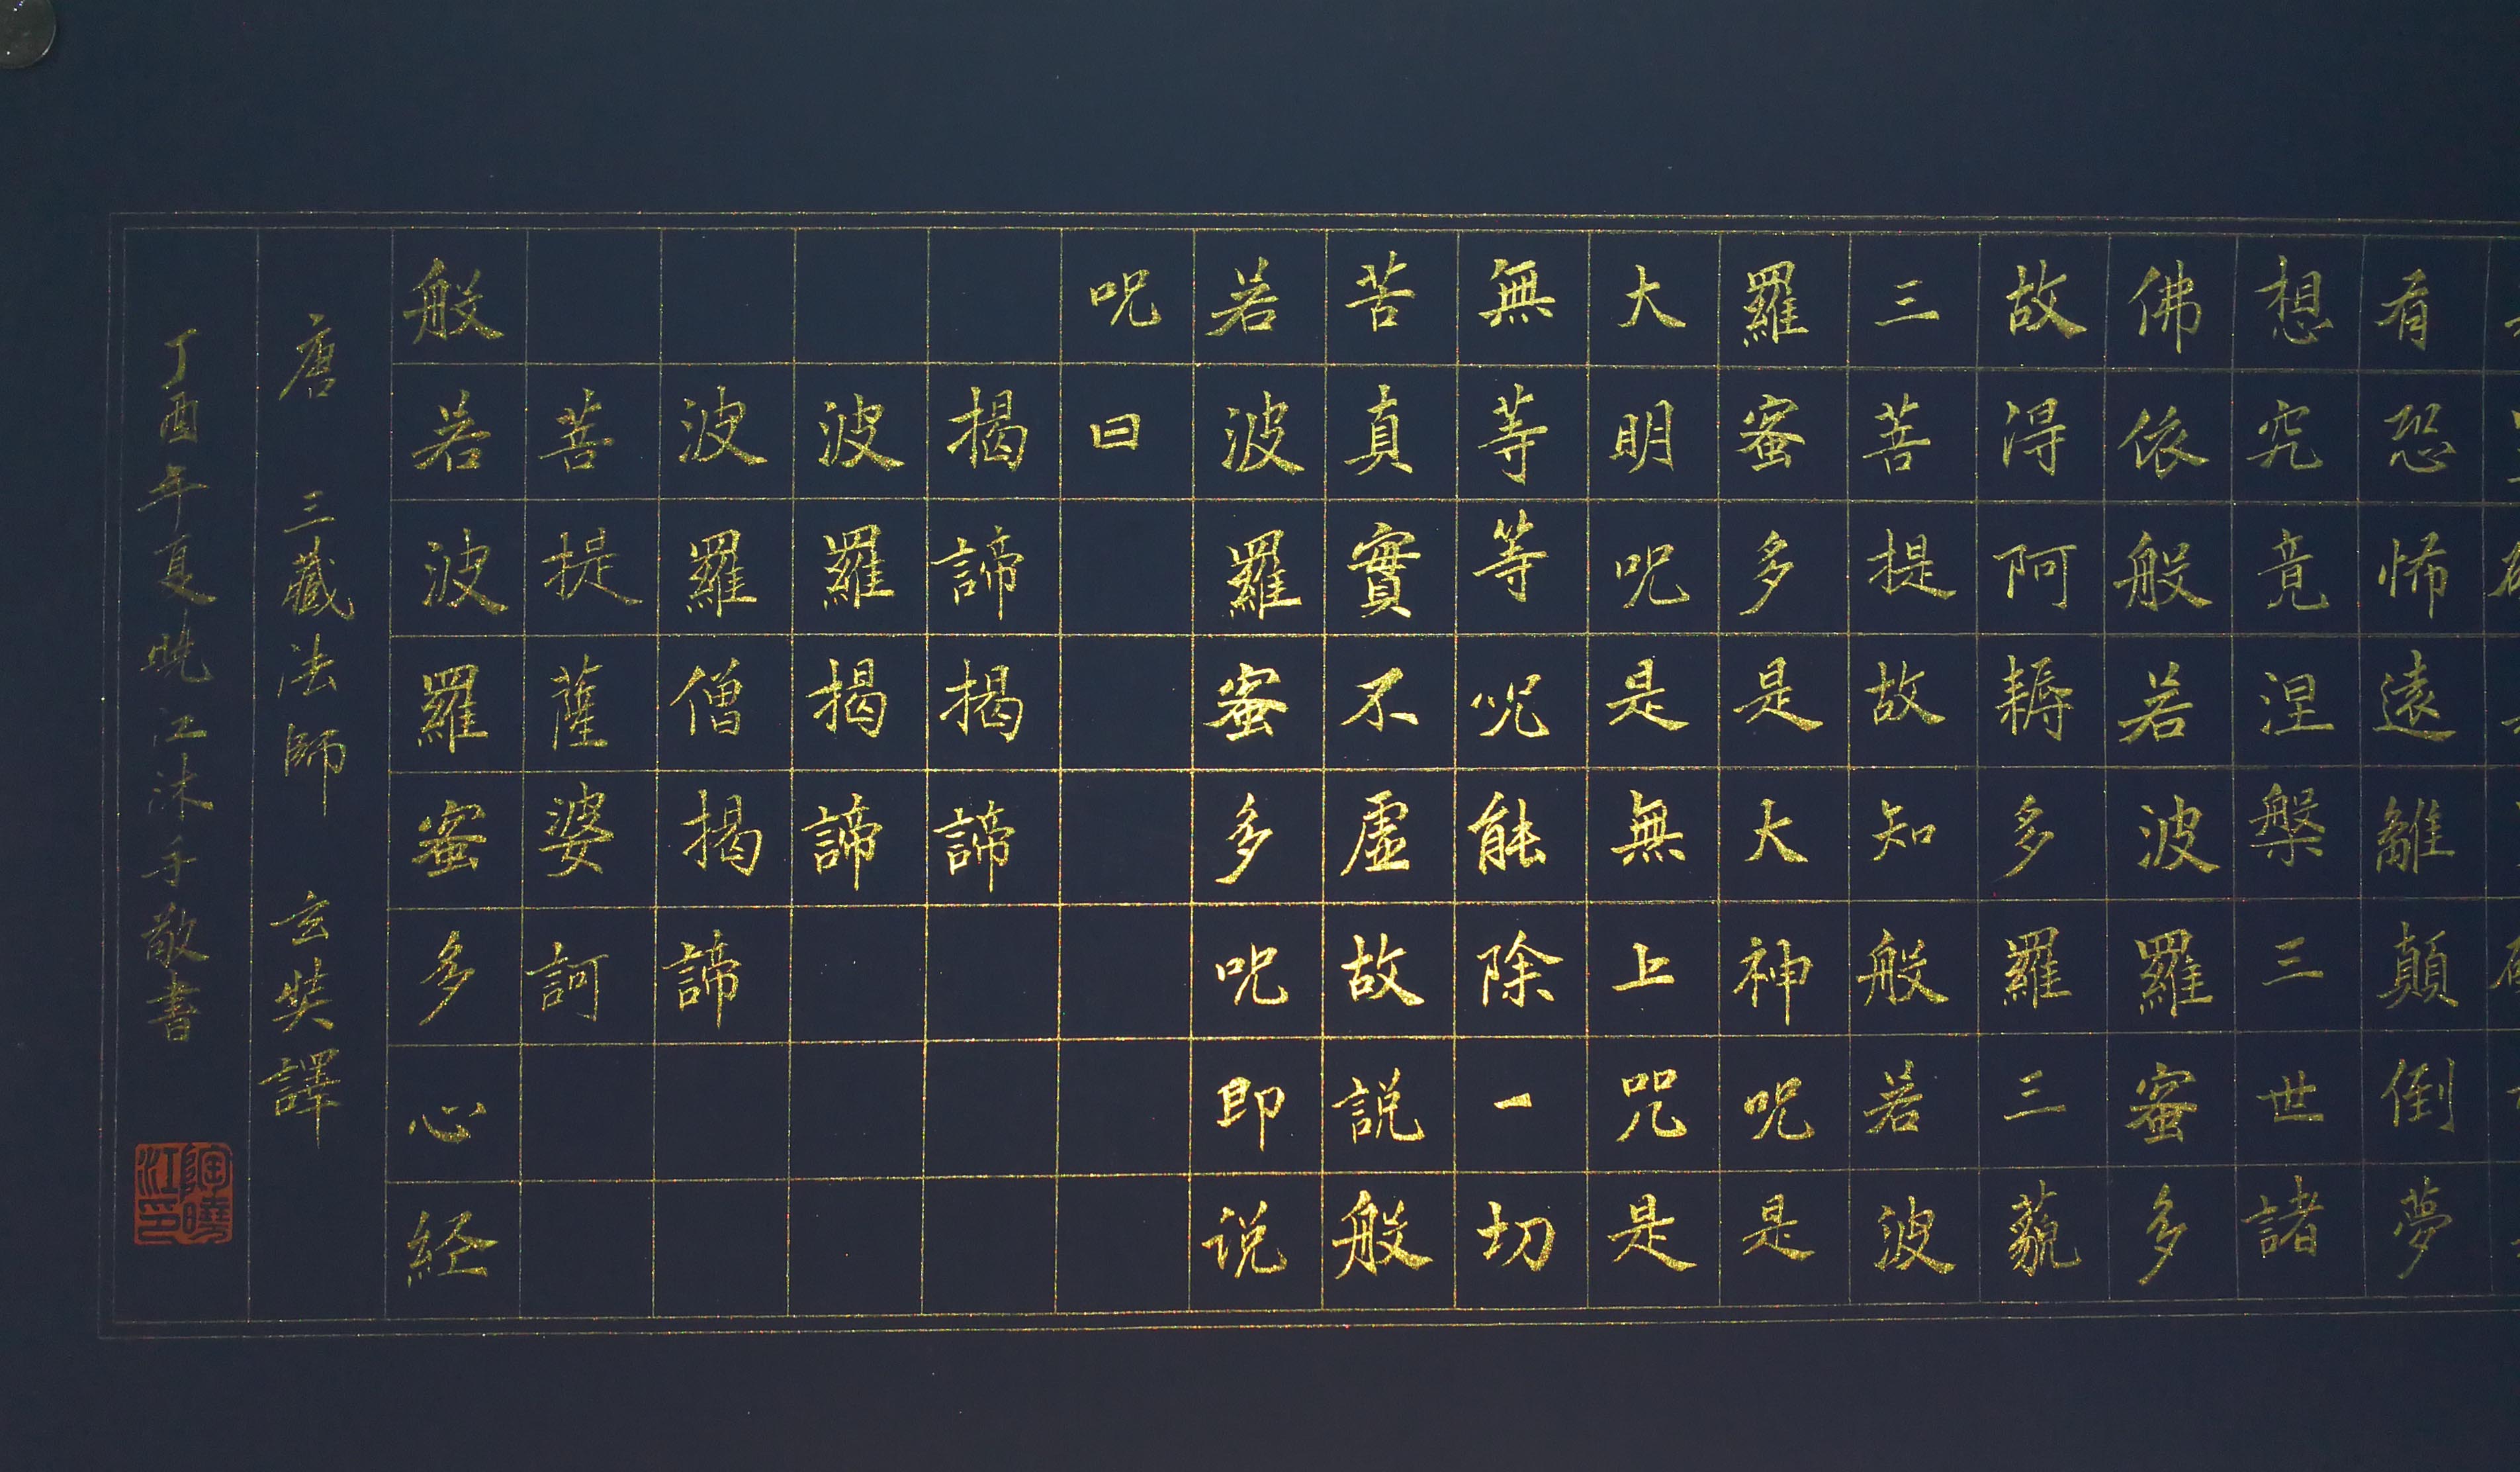 有恐怖遠離顛倒夢
想究竟涅槃三世諸
佛依般若波羅蜜多
故得阿耨多羅三藐
三菩提故知般若波
羅蜜多是大神呪是
大明呪是無上咒是
無等等呪能除一切
苦真實不虛故説般
若波羅蜜多呪即说
呪曰
揭諦揭諦
波羅揭諦
波羅僧揭諦
菩提薩婆訶
般若波羅蜜多心经
唐 三藏法師 玄奘譯
丁酉年夏曉江沐手敬書
陶曉江印